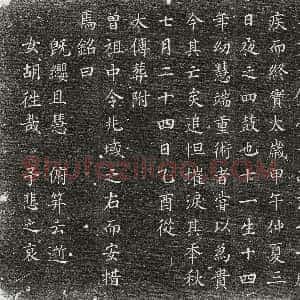 疾而終實大歲甲午仲夏三
日夜之四鼓也一生十四
笄幼慧端重術者嘗以為貴
今其亡矣追怛摧淚其秊秋
七月二十四日乙酉從
大傅葬附
曾祖中令兆域之右而安措
焉銘曰
既纓且慧 俯筭云逝
女胡往哉 予悲之哀
Shufaziliao.COM